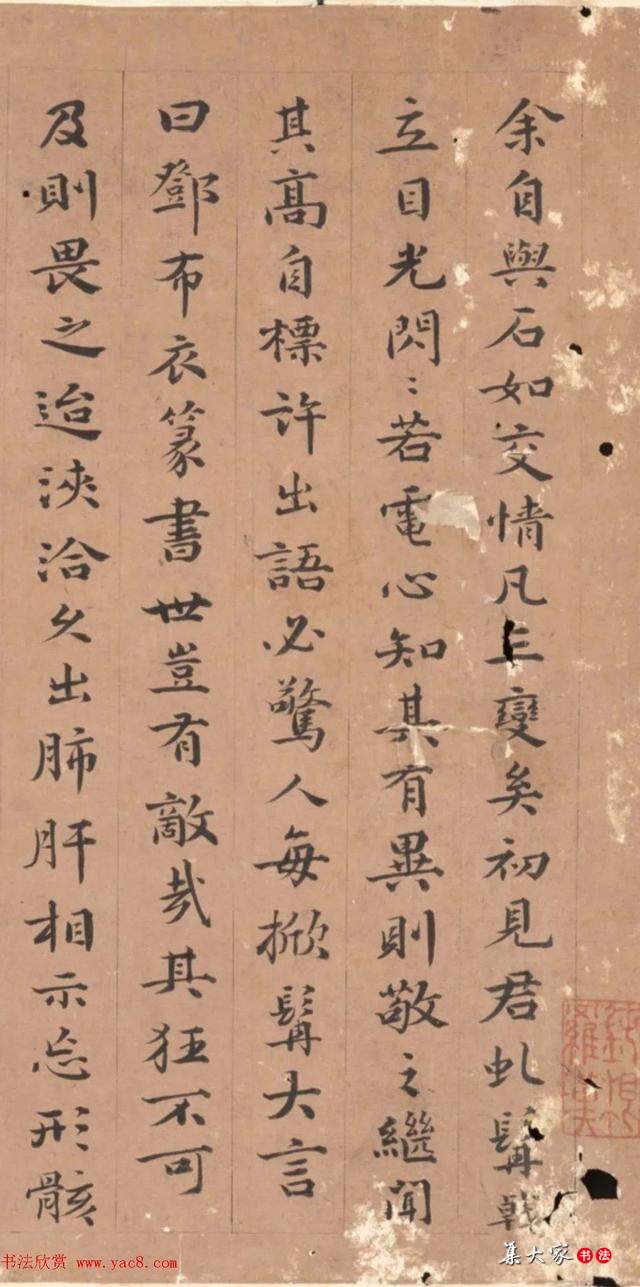 余自與石如交情凡三變矣初見君虬髯戟
立目光閃〻若電心知其有異則敬之繼聞
其高自標許出語必驚人每掀髯大言
曰鄧布衣篆書世豈有敵哉其狂不可
及則畏之迨浹洽久出肺肝相示忘形骸
书法欣赏 www.yac8.com
集大家书法